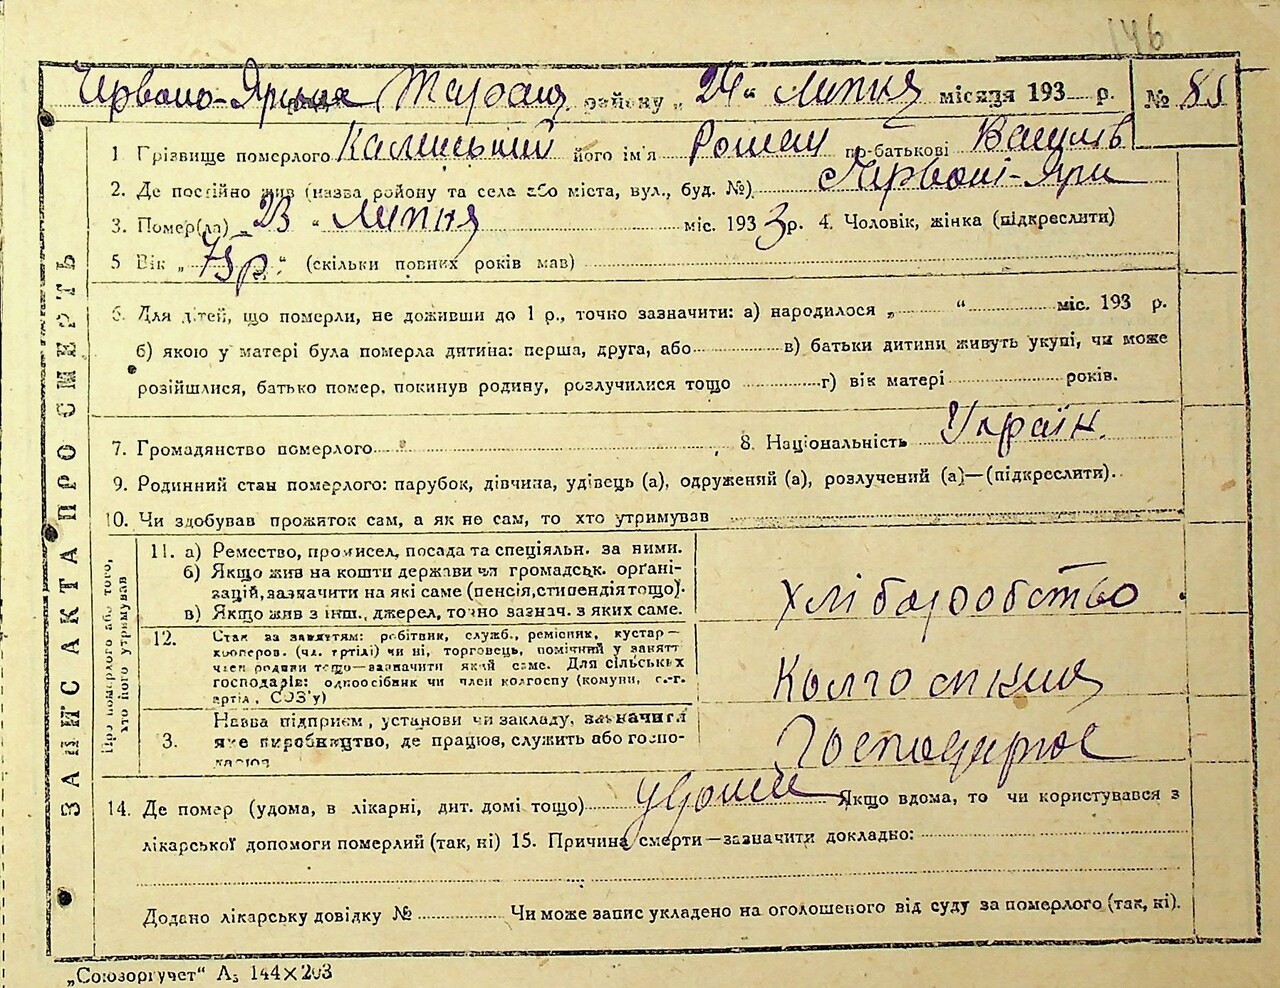 146
Червоно-Ярська Тараща району „ 24 “ Липня місяця 193 р. № 85
1 Прізвище померлого Калинський його ім'я Роман по-батькові Василів
2. Де постійно жив (назва району та села або міста, вул., буд. №) Червоні-Яри
3. Помер(ла) „ 23 “ Липня міс. 1933 р. 4. Чоловік, жінка (підкреслити)
5 Вік „ 75 р. “ (скільки повних років мав)
6. Для дітей, що померли, не доживши до 1 р., точно зазначити: а) народилося „ “ міс. 193 р.
б) якою у матері була померла дитина: перша, друга, або в) батьки дитини живуть укупі, чи може
розійшлися, батько помер, покинув родину, розлучилися тощо г) вік матері років.
7. Громадянство померлого 8. Національність Україн.
9. Родинний стан померлого: парубок, дівчина, удівець (а), одружений (а), розлучений (а)—(підкреслити).
10. Чи здобував прожиток сам, а як не сам, то хто утримував
ЗАПИС АКТА ПРО СМЕРТЬ
Про померлого або того, хто його утримував
11. а) Ремество, промисел, посада та спеціяльн. за ними.
б) Якщо жив на кошти держави чи громадськ. орґані-
зацій, зазначити на які саме (пенсія, стипендія тощо).
в) Якщо жив з інш. джерел, точно зазнач. з яких саме.
хліборобство
12. Стан за заняттям: робітник, служб., ремісник, кустар—
кооперов. (чл. артілі) чи ні, торговець, помічний у занятт
член родини тощо—зазначити який саме. Для сільських
господарів: одноосібник чи член колгоспу (комуни, с.-г.
артіл, СОЗ'у)
3. Назва підприєм, установи чи закладу, зазначити
яке виробництво, де працює, служить або госпо-
Господарює
14. Де помер (удома, в лікарні, дит. домі тощо) удома Якщо вдома, то чи користувався з
лікарської допомоги померлий (так, ні) 15. Причина смерти—зазначити докладно:
Додано лікарську довідку № Чи може запис укладено на оголошеного від суду за померлого (так, ні).
„Союзоргучет“ А₅ 144×203